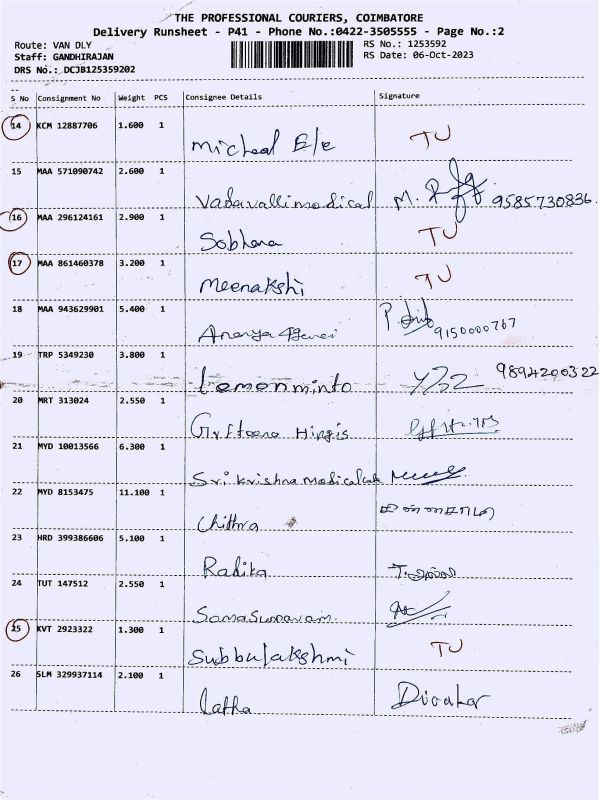 THE PROFESSIONAL COURIERS, COIMBATORE
Delivery Runsheet - P41 - Phone No.:0422-3505555 - Page No.:2
Route: VAN DLY
RS No.: 1253592
Staff: GANDHIRAJAN
RS Date: 06-Oct-2023
DRS No.: DCJB125359202
S No Consignment No Weight PCS Consignee Details Signature
14 KCM 12887706 1.600 1 Micheal E/e TU
15 MAA 571090742 2.600 1 Vadavallimedical M. 9585730836.
16 MAA 296124161 2.900 1 Sobhana TU
17 MAA 861460378 3.200 1 Meenakshi TU
18 MAA 943629901 5.400 1 Ananya 9150000767
19 TRP 5349230 3.800 1 Lemonminto 9894200322
20 MRT 313024 2.550 1
21 MYD 10013566 6.300 1 Sri Krishna
22 MYD 8153475 11.100 1 Chithra
23 HRD 399386606 5.100 1 Radika
24 TUT 147512 2.550 1
25 KVT 2923322 1.300 1 Subbulakshmi TU
26 SLM 329937114 2.100 1 latha Divakar